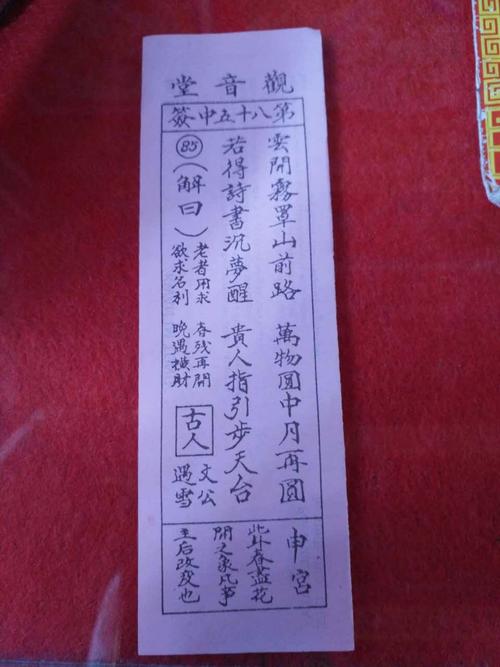 觀音堂
第八十五中簽
雲開霧罩山前路
萬物圓中月再圓
若得詩書沉夢醒
貴人指引步天台
85
(解曰)
老者用求
欲求名利
春殘再開
晚遇橫財
古人
文公
遇雪
申宮
此卦春盡花
開之象凡事
主后改變也